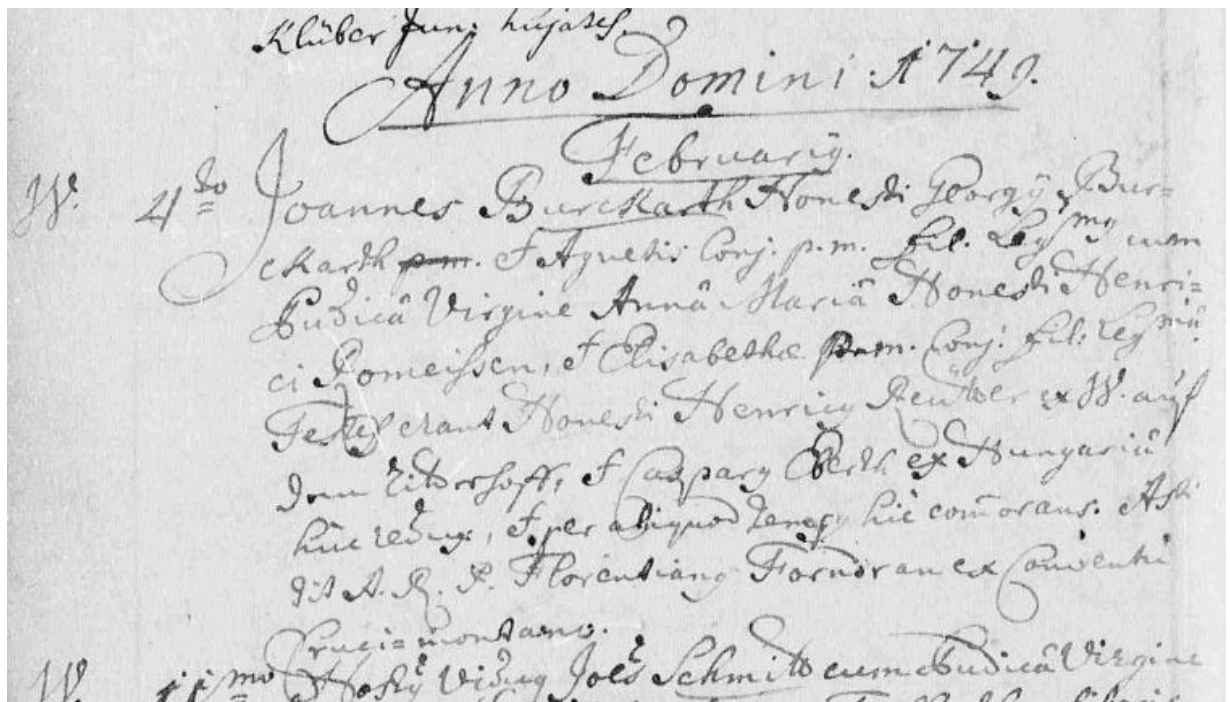 Klüber Jun: hujates.
Anno Domini 1749.
Februarÿ.
W. 4to Joannes Burckarth Honesti Georgÿ Bur=
ckarth p.m. & Agnetis Conj. p.m. fil. Leg mg cum
Pudicâ Virgine Annâ Mariâ Honesti Henri=
ci Romeissen, & Elisabethæ p.m. Conj. fil: Leg mâ
Testes erant Honesti Henricg ex W. auf
dem & Casparg ex Hungariâ
huc redux, & per aliquod hic com̄orans. Asti
dit A. R. P. Florentiang ex Conventu
Cruci=montano.
W. 11mo Joēs Schmitt cum Pudicâ Virgine